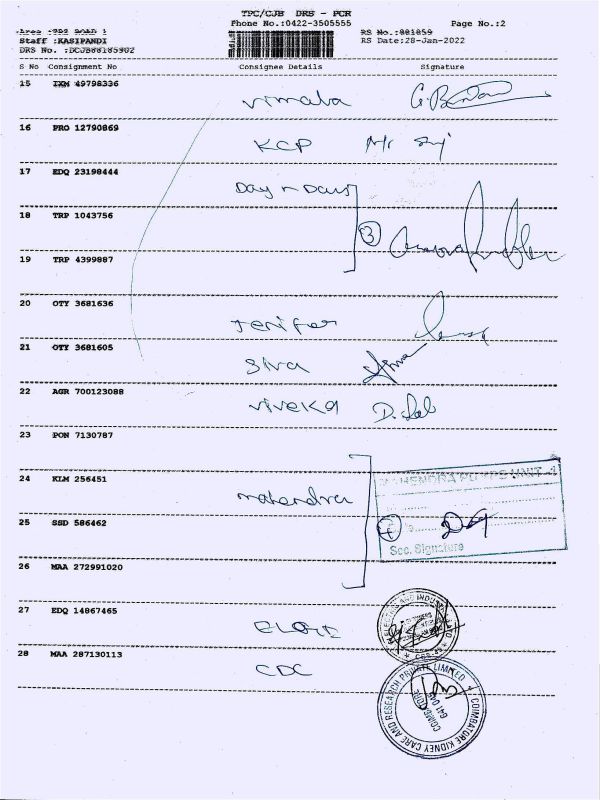 TPC/CJB DRS - PCR
Phone No.:0422-3505555 Page No.:2
Area :TPS ROAD 1 RS No.:881859
Staff :KASIPANDI RS Date:28-Jan-2022
DRS No. :DCJB88185902
S No Consignment No Consignee Details Signature
15 IXM 49798336
vimala
16 PRO 12790869
KCP
17 EDQ 23198444
Day n Days
18 TRP 1043756
3
19 TRP 4399887
20 OTY 3681636
Jenifer
21 OTY 3681605
Siva
22 AGR 700123088
viveka
23 PON 7130787
24 KLM 256451
MAHENDRA PUMPS UNIT
mahendra
25 SSD 586462
Sec. Signature
26 MAA 272991020
27 EDQ 14867465
28 MAA 287130113
CDC
COIMBATORE KIDNEY CARE AND RESEARCH PRIVATE LIMITED
COIMBATORE
641 045